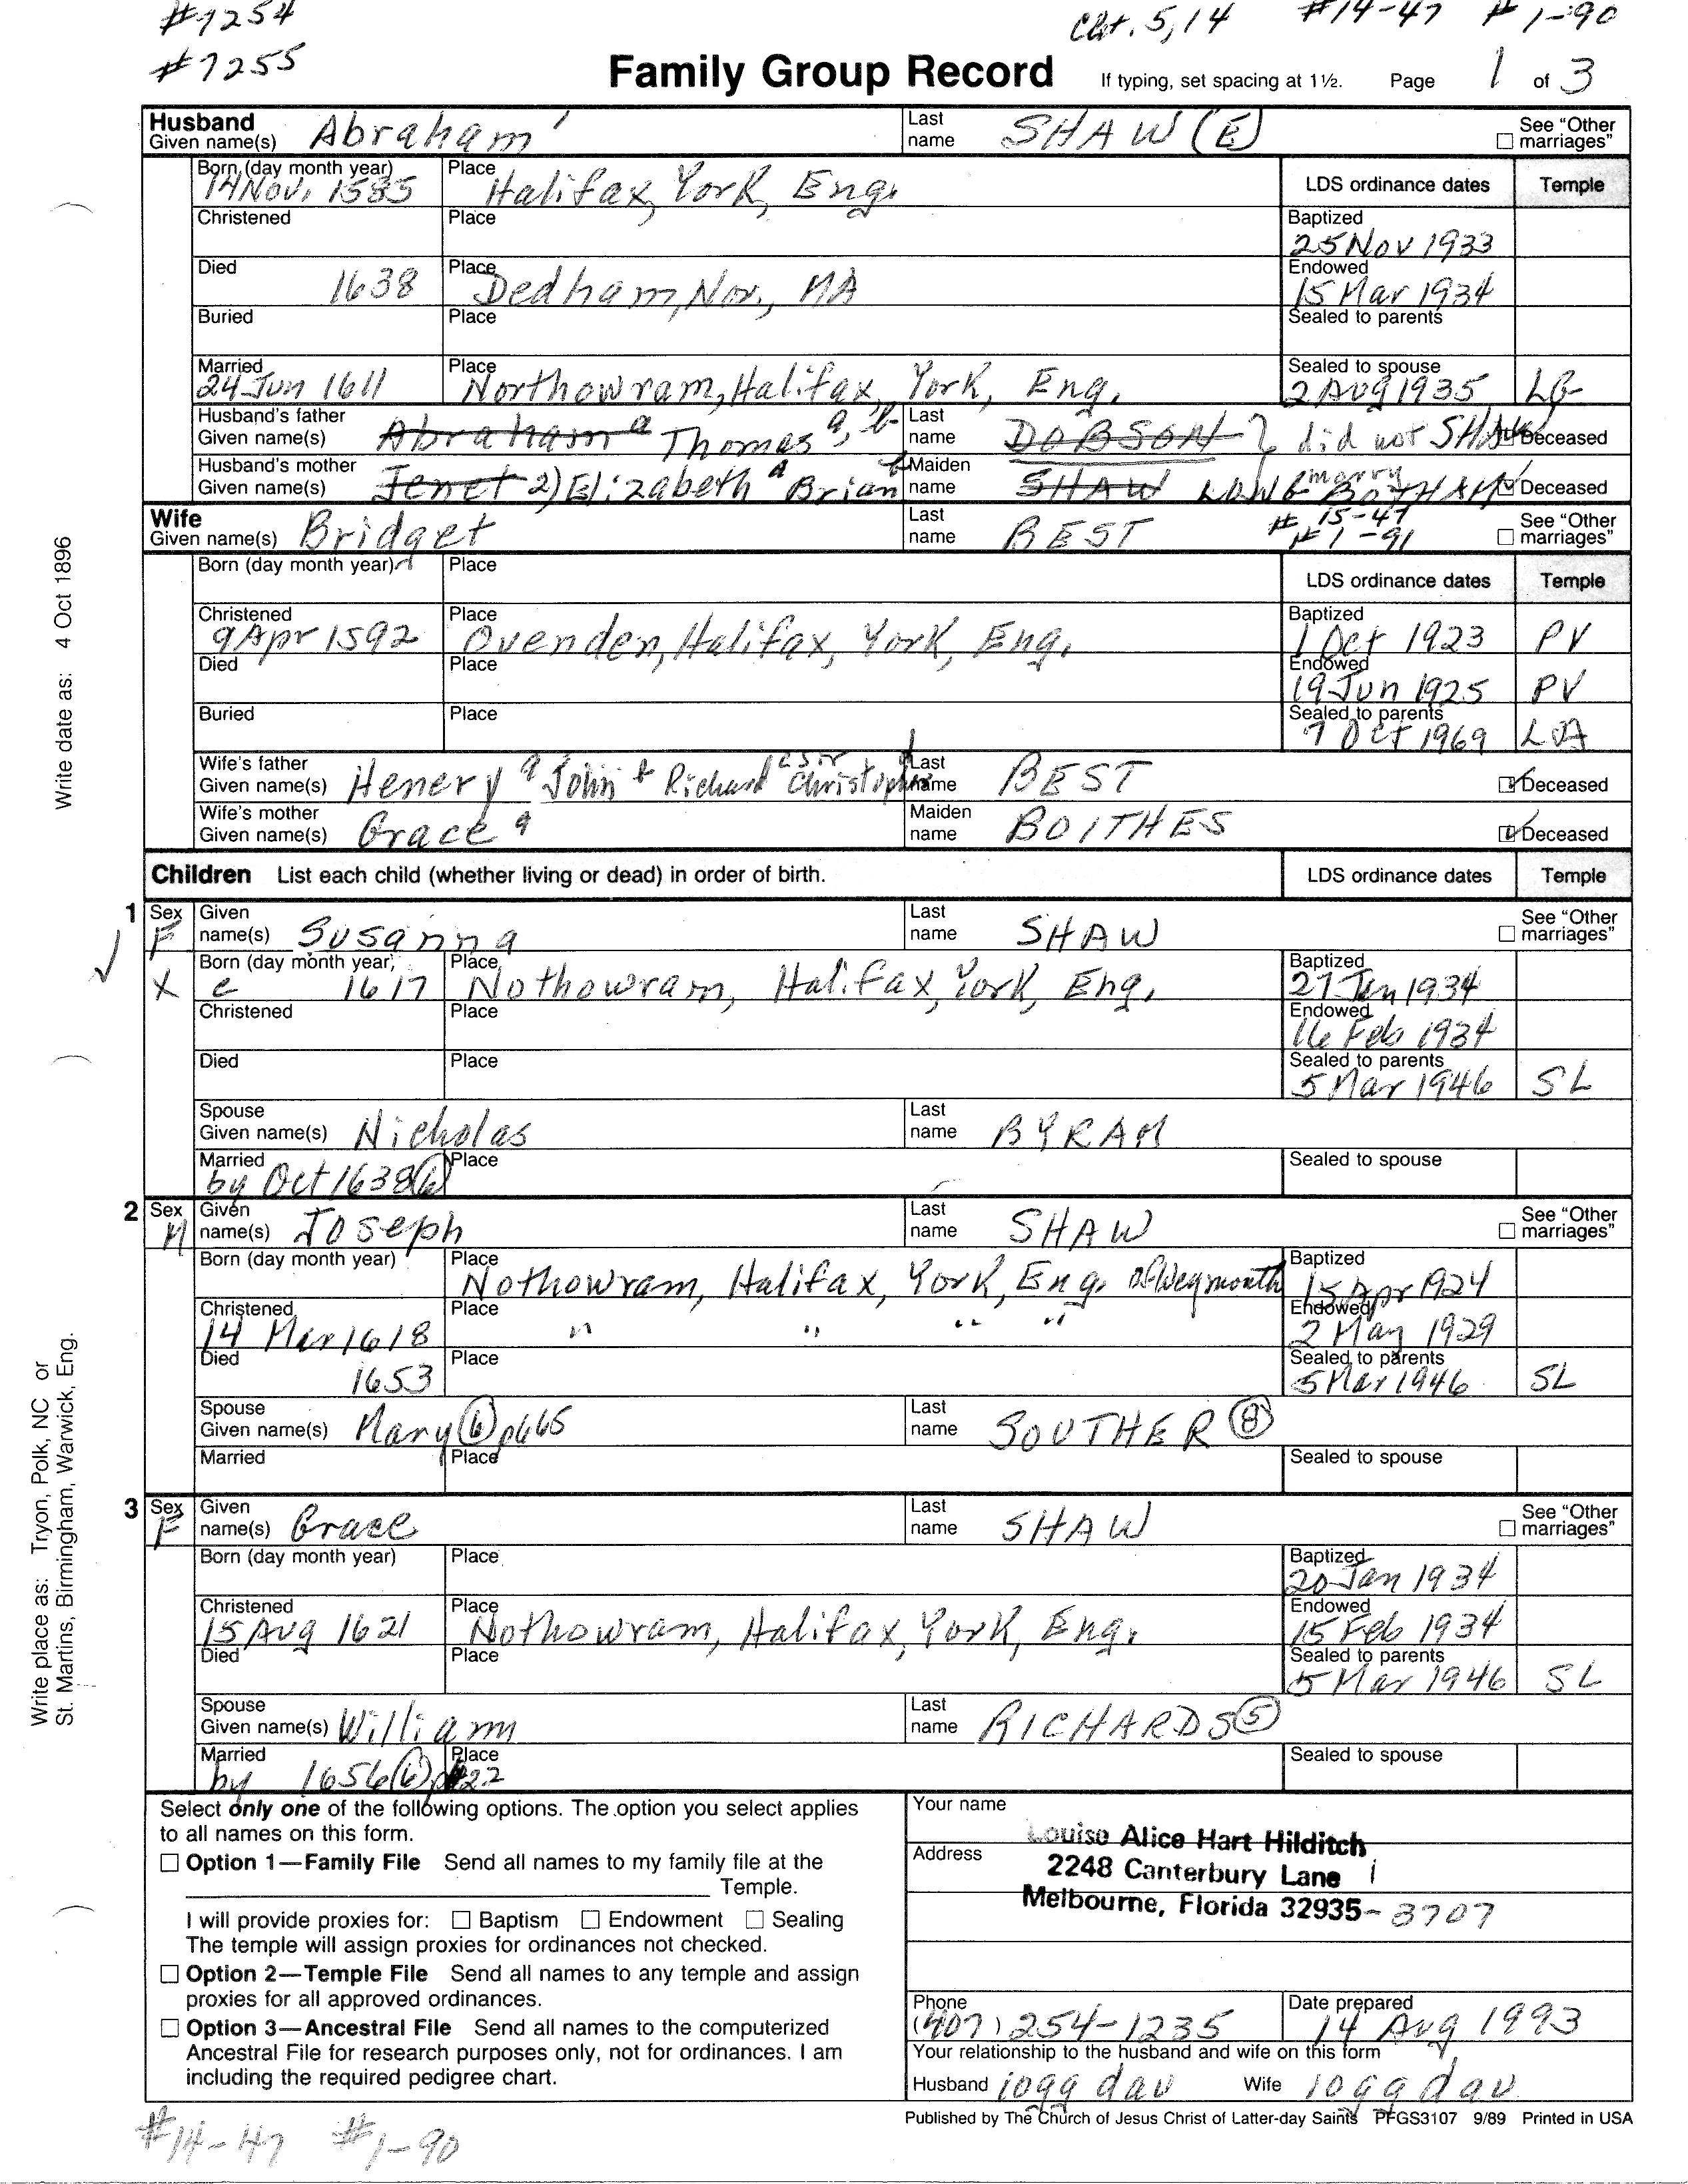 #7254 Cht. 5,14 #14-47 #1-90
#7255
Family Group Record If typing, set spacing at 1½. Page 1 of 3
Husband
Given name(s) Abraham Last name SHAW (E) See "Other marriages"
Born (day month year) 14 Nov. 1585 Place Halifax, York, Eng. LDS ordinance dates Temple
Christened Place Baptized 25 Nov 1933
Died 1638 Place Dedham, Nor., MA Endowed 15 Mar 1934
Buried Place Sealed to parents
Married 24 Jun 1611 Place Northowram, Halifax, York, Eng. Sealed to spouse 2 Aug 1935 LG
Husband's father
Given name(s) Abraham a Thomas a, b Last name DOBSON ? did not SHAW Deceased
marry
Husband's mother
Given name(s) Jenet 2) Elizabeth a Brian b Maiden name SHAW Deceased
Wife
Given name(s) Bridget Last name BEST # 15-47 # 1-91 See "Other marriages"
Born (day month year) Place LDS ordinance dates Temple
Christened 9 Apr 1592 Place Ovenden, Halifax, York, Eng. Baptized 1 Oct 1923 PV
Died Place Endowed 19 Jun 1925 PV
Buried Place Sealed to parents 7 Oct 1969 LOA
Wife's father
Given name(s) Henery a John + Richard Christopher Last name BEST Deceased
Wife's mother
Given name(s) Grace a Maiden name BOITHES Deceased
Children List each child (whether living or dead) in order of birth. LDS ordinance dates Temple
1 Sex F Given name(s) Susanna Last name SHAW See "Other marriages"
X Born (day month year) c 1617 Place Nothowram, Halifax, York, Eng. Baptized 27 Jan 1934
Christened Place Endowed 16 Feb 1934
Died Place Sealed to parents 5 Mar 1946 SL
Spouse
Given name(s) Nicholas Last name BYRAM
Married by Oct 1638 (6) Place Sealed to spouse
2 Sex M Given name(s) Joseph Last name SHAW See "Other marriages"
Born (day month year) Place Nothowram, Halifax, York, Eng. of Weymouth Baptized 15 Apr 1924
Christened 14 Mar 1618 Place " " " " Endowed 2 May 1929
Died 1653 Place Sealed to parents 5 Mar 1946 SL
Spouse
Given name(s) Mary (6) p665 Last name SOUTHER (8)
Married Place Sealed to spouse
3 Sex F Given name(s) Grace Last name SHAW See "Other marriages"
Born (day month year) Place Baptized 20 Jan 1934
Christened 15 Aug 1621 Place Nothowram, Halifax, York, Eng. Endowed 15 Feb 1934
Died Place Sealed to parents 5 Mar 1946 SL
Spouse
Given name(s) William Last name RICHARDS (5)
Married by 1656 (6) Place Sealed to spouse
Select only one of the following options. The option you select applies
to all names on this form.
Option 1—Family File Send all names to my family file at the
Temple.
I will provide proxies for: Baptism Endowment Sealing
The temple will assign proxies for ordinances not checked.
Option 2—Temple File Send all names to any temple and assign
proxies for all approved ordinances.
Option 3—Ancestral File Send all names to the computerized
Ancestral File for research purposes only, not for ordinances. I am
including the required pedigree chart.
Your name
Louise Alice Hart Hilditch
Address
2248 Canterbury Lane
Melbourne, Florida 32935-3707
Phone (407) 254-1235 Date prepared 14 Aug 1993
Your relationship to the husband and wife on this form
Husband 10gg dau Wife 10gg dau
Published by The Church of Jesus Christ of Latter-day Saints PFGS3107 9/89 Printed in USA
#14-47 #1-90
Write date as: 4 Oct 1896
Write place as: Tryon, Polk, NC or
St. Martins, Birmingham, Warwick, Eng.